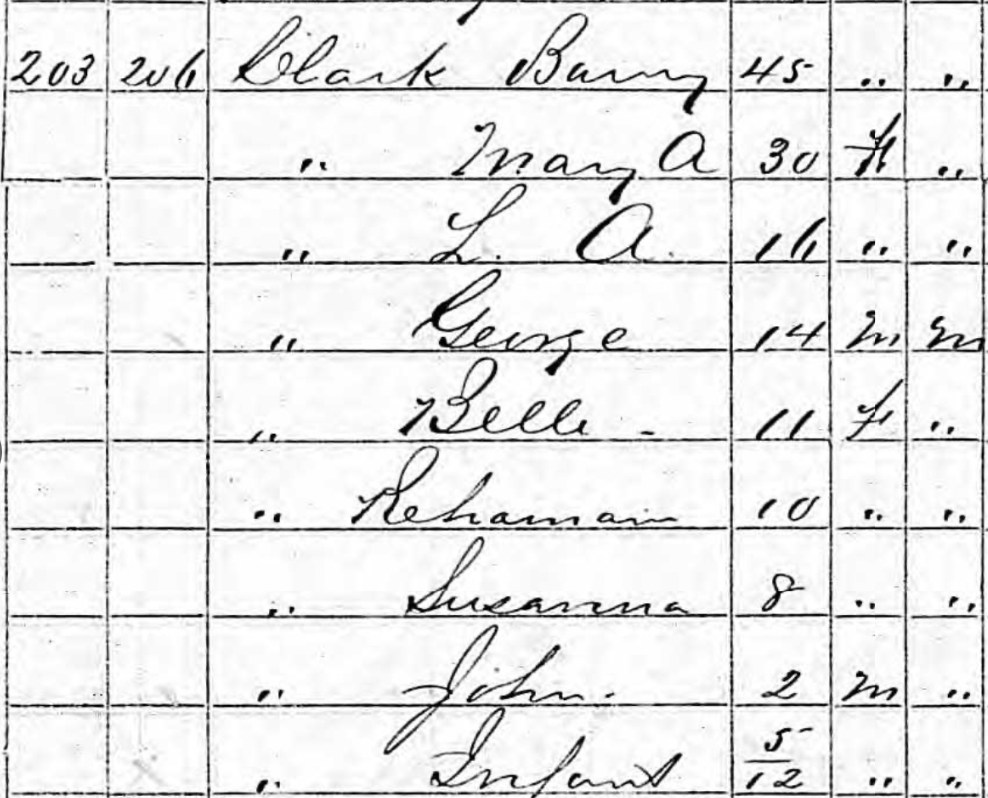 203 206 Clark Barry 45 " "
" Mary A 30 f "
" L. A. 16 " "
" George 14 m m
" Belle - 11 f "
" Rehamain 10 " "
" Susanna 8 " "
" John. 2 m "
" Infant 5/12 " "